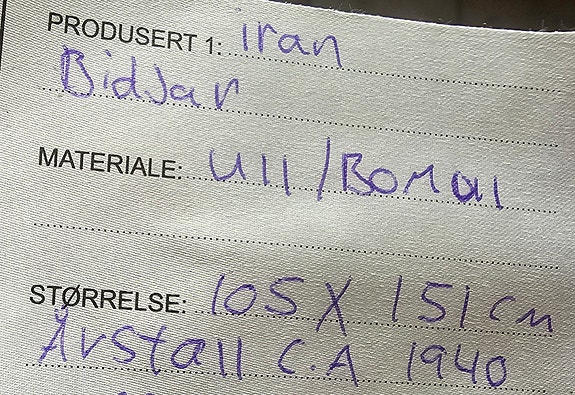 PRODUSERT 1: Iran
Bidjar
MATERIALE: Ull/Bomull
STØRRELSE: 105 X 151 cm
Årstall C.A 1940